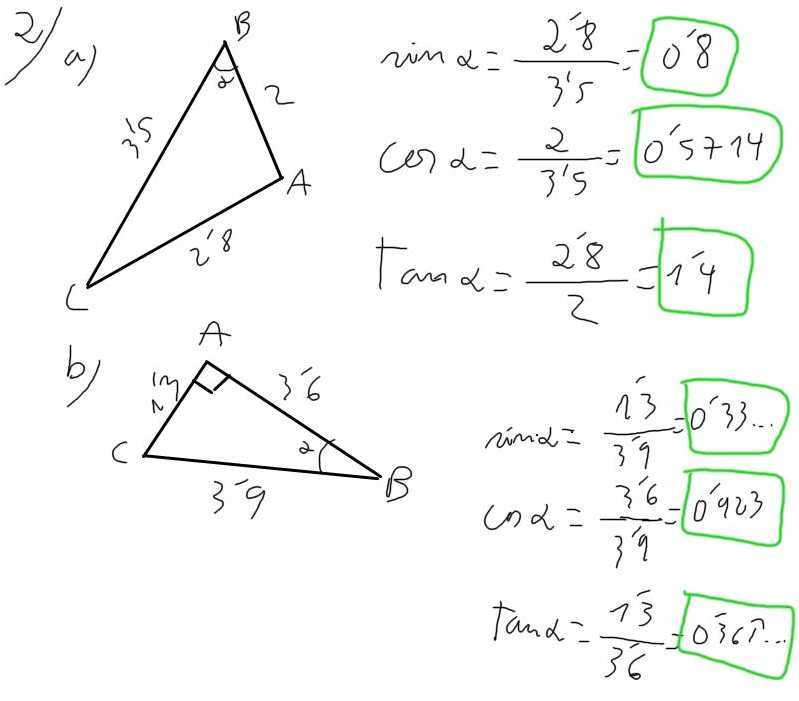 2/
a)
B
α
3'5
2
A
2'8
C
sin α = 2'8 / 3'5 = 0'8
cos α = 2 / 3'5 = 0'5714
Tan α = 2'8 / 2 = 1'4
b)
A
1'3
3'6
α
C
3'9
B
sin α = 1'3 / 3'9 = 0'33...
cos α = 3'6 / 3'9 = 0'923
Tan α = 1'3 / 3'6 = 0'361...